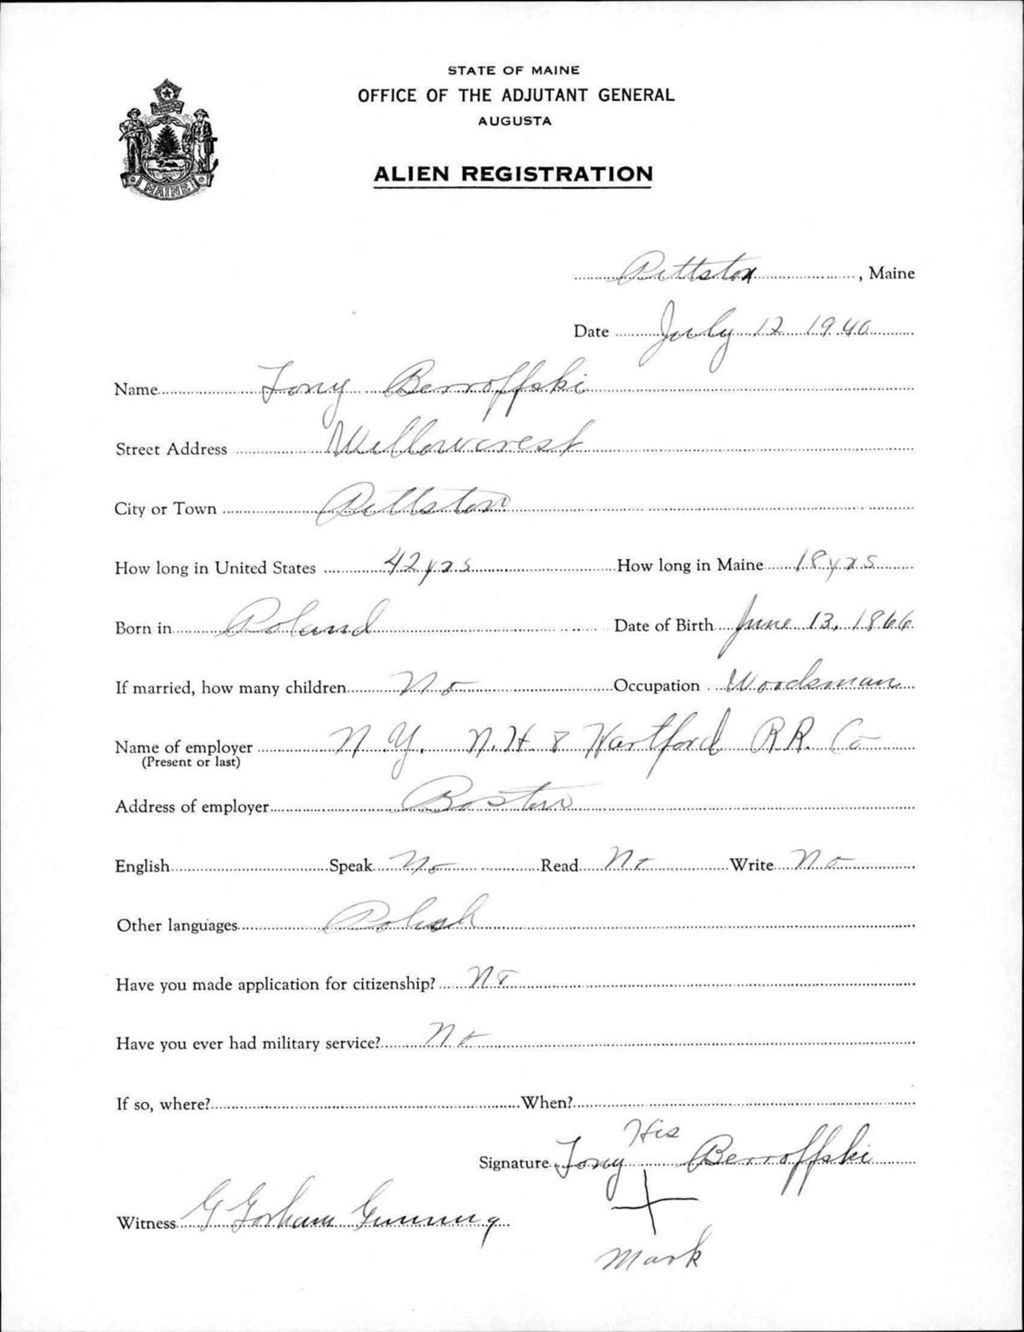 STATE OF MAINE
OFFICE OF THE ADJUTANT GENERAL
AUGUSTA
ALIEN REGISTRATION
MAINE
Pittston, Maine
Date July 12 1940
Name Tony Berroffski
Street Address Willowcrest
City or Town Pittston
How long in United States 42 yrs How long in Maine 18 yrs
Born in Poland Date of Birth June 13, 1866
If married, how many children No Occupation Woodsman
Name of employer N.Y. N.H & Hartford R.R. Co
(Present or last)
Address of employer Boston
English Speak No Read No Write No
Other languages Polish
Have you made application for citizenship? No
Have you ever had military service? No
If so, where? When?
His
Signature Tony Berroffski
Witness G Gorham Gunning
Mark